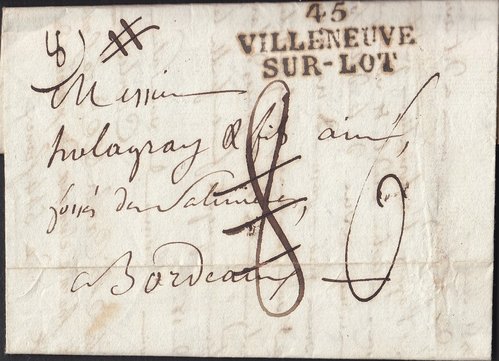 45
VILLENEUVE
SUR-LOT
Messieurs
& fils ainé,
fossés des Salinières,
a Bordeaux